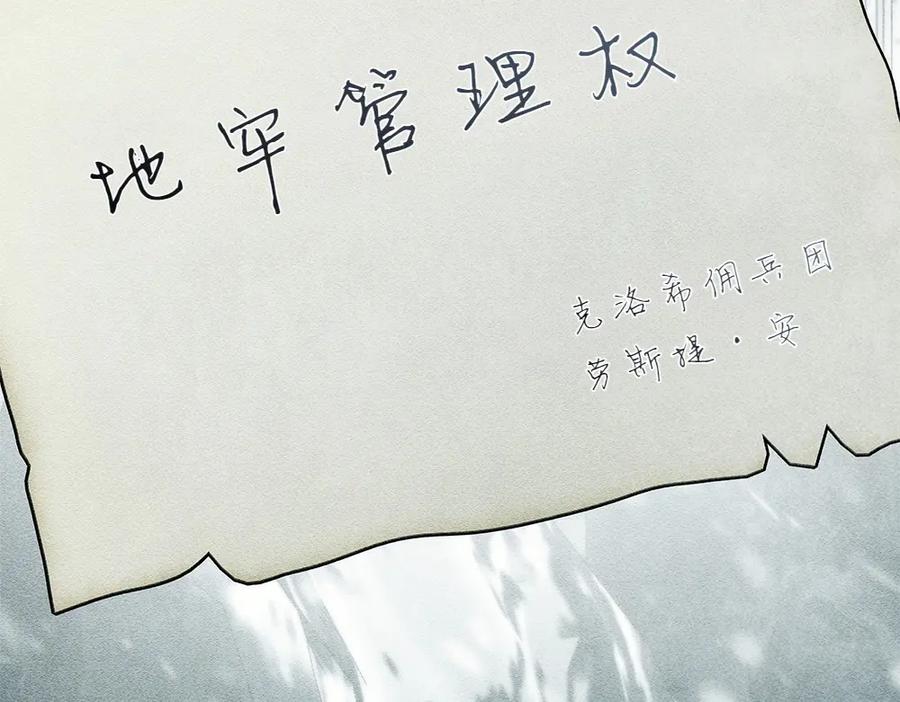 地牢管理权
克洛希佣兵团
劳斯提·安